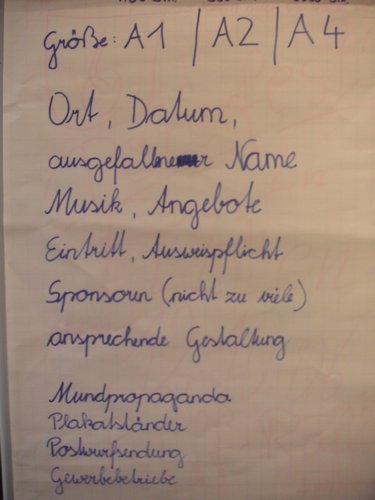 Größe: A1 | A2 | A4
Ort, Datum,
ausgefallener Name
Musik, Angebote
Eintritt, Ausweispflicht
Sponsoren (nicht zu viele)
ansprechende Gestaltung
Mundpropaganda
Plakatständer
Postwurfsendung
Gewerbebetriebe